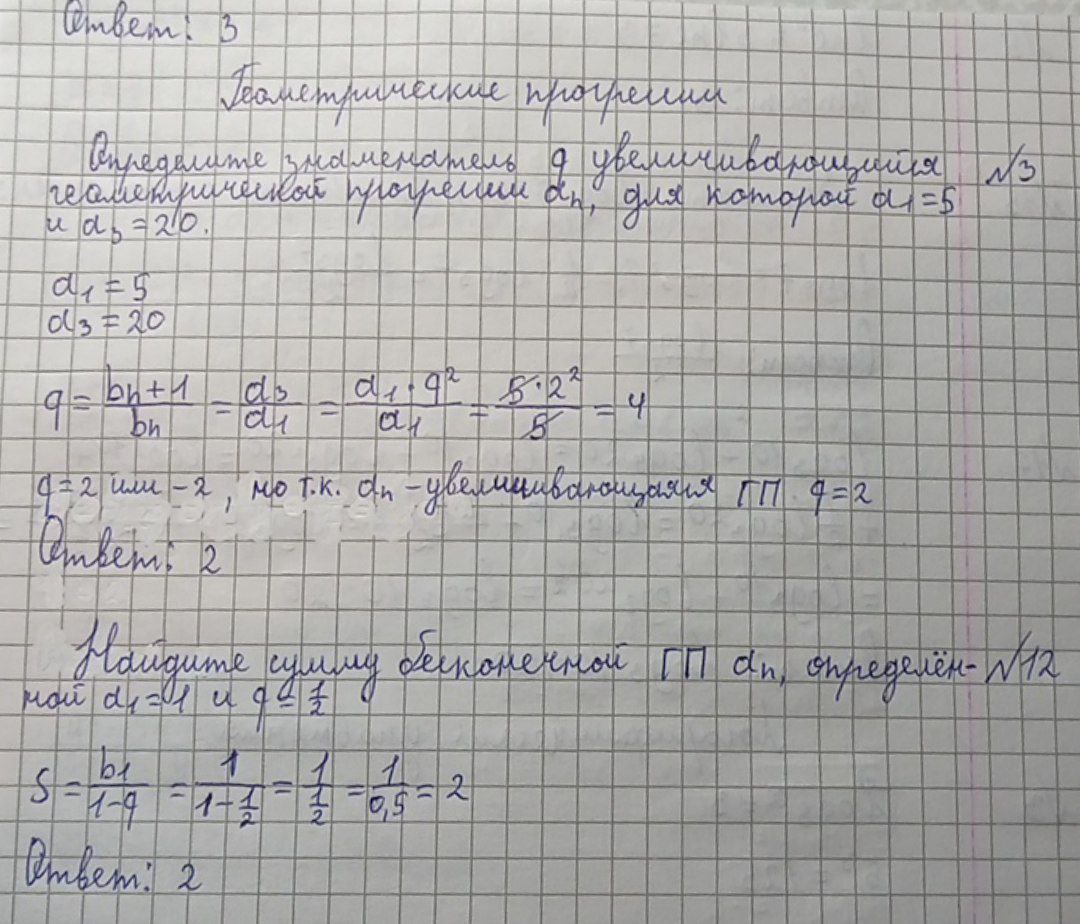 Ответ: 3
Геометрические прогрессии
Определите знаменатель q увеличивающийся №3
геометрической прогрессии dn, для которой d1=5
и d3=20.
d1=5
d3=20
q = bn+1/bn = d3/d1 = d1·q²/d1 = 5·2²/5 = 4
q=2 или -2, но т.к. dn - увеличивающаяся ГП q=2
Ответ: 2
Найдите сумму бесконечной ГП dn, определён- №12
ной d1=1 и q=1/2
S = b1/1-q = 1/1-1/2 = 1/1/2 = 1/0,5 = 2
Ответ: 2